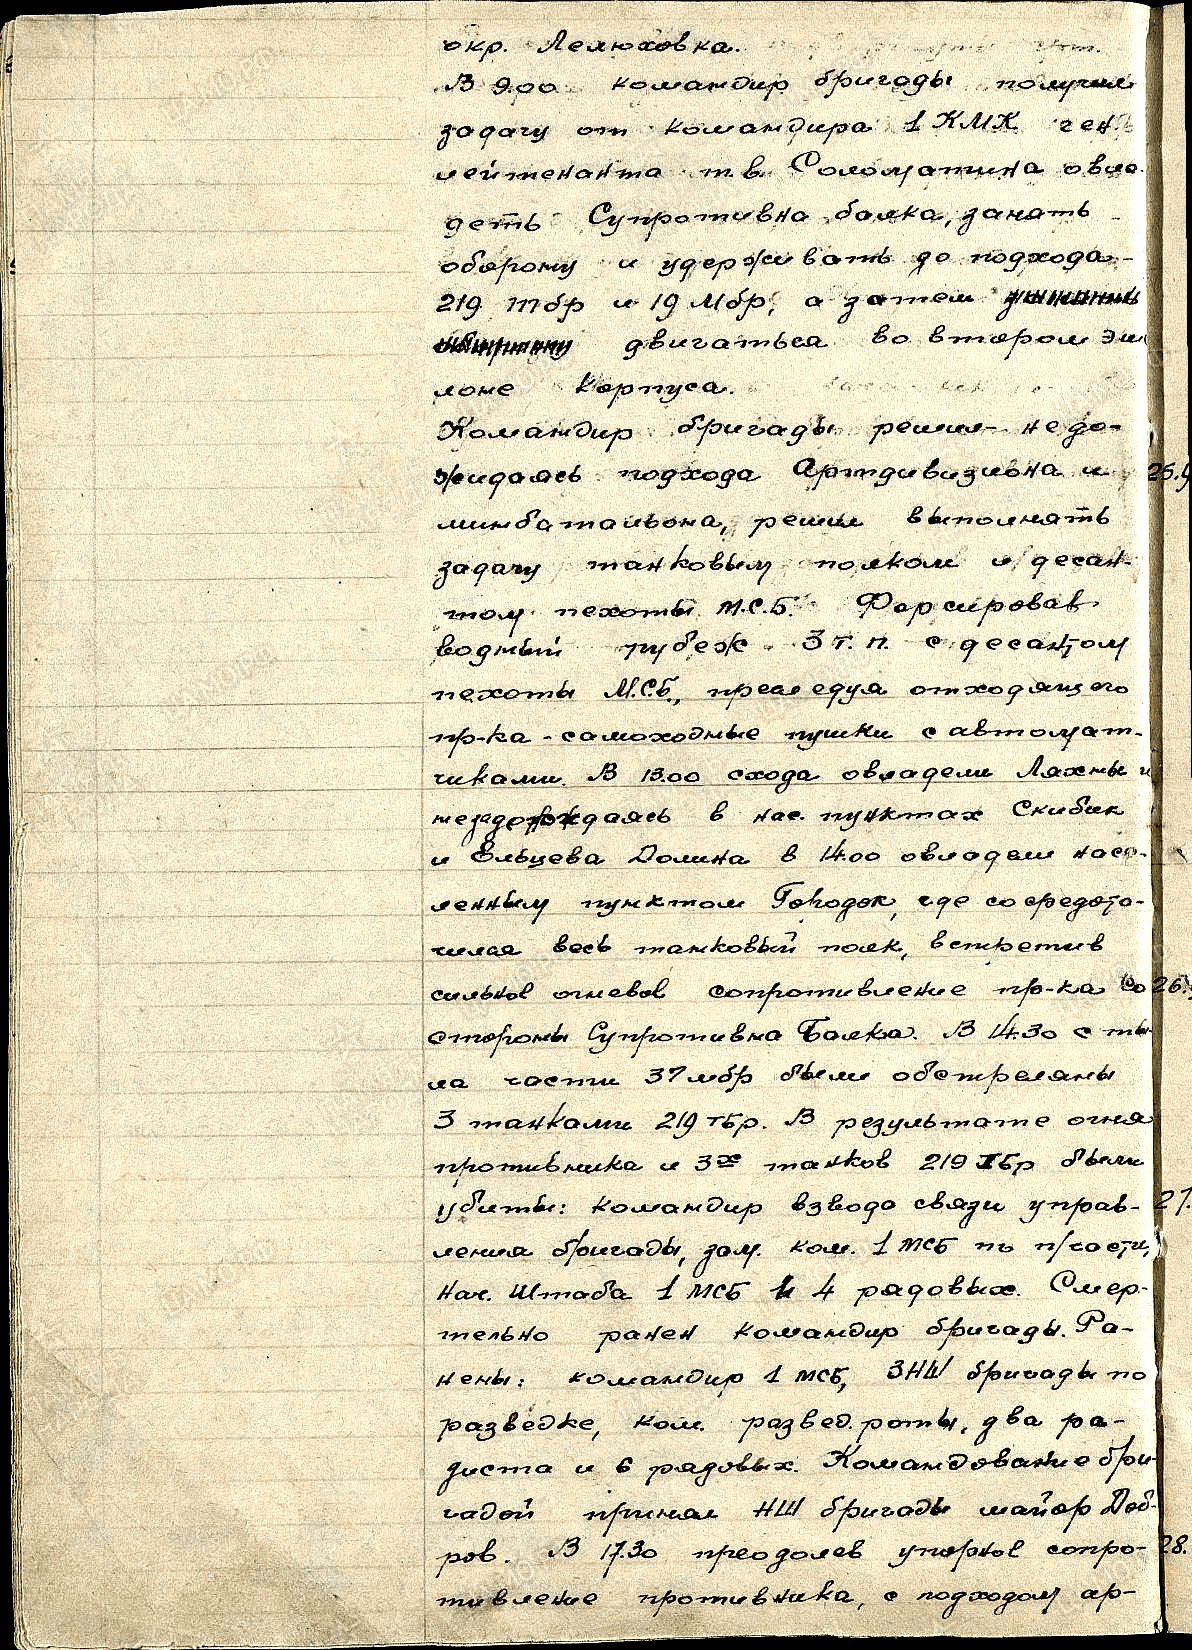 окр. Лелюховка.
В 9.00 командир бригады получил
задачу от командира 1 КМК ген.
лейтенанта т.в. Соломатина овла-
деть Супротивна балка, занять
оборону и удерживать до подхода
219 тбр и 19 Мбр, а затем
двигаться во втором эше
лоне Корпуса.
Командир бригады решил не до-
жидаясь подхода Артдивизиона и
минбатальона, решил выполнять
задачу танковым полком и десан-
том пехоты М.С.Б. Форсировав
водный рубеж 3 т.п. с десантом
пехоты М.С.Б., преследуя отходящего
пр-ка - самоходные пушки с автомат-
чиками. В 13.00 схода овладели Ляхны и
незадерживаясь в нас. пунктах Скибик
и Ельцева Долина в 14.00 овладели насе-
ленным пунктом Городок, где сосредото-
чился весь танковый полк, встретив
сильное огневое сопротивление пр-ка со
стороны Супротивна Балка. В 14.30 с ты-
ла части 37 мбр были обстреляны
3 танками 219 тбр. В результате огня
противника и 3х танков 219 тбр были
убиты: командир взвода связи управ-
ления бригады, зам. ком. 1 мсб по п/части,
Нач. Штаба 1 мсб и 4 рядовых. Смер-
тельно ранен командир бригады. Ра-
нены: командир 1 мсб, ЗНШ бригады по
разведке, ком. развед. роты, два ра-
диста и 6 рядовых. Командование бри-
гадой принял НШ бригады майор Доб-
ров. В 17.30 преодолев упорное сопро-
тивление противника, с подходом ар-
25.9
26.9
27.
28.